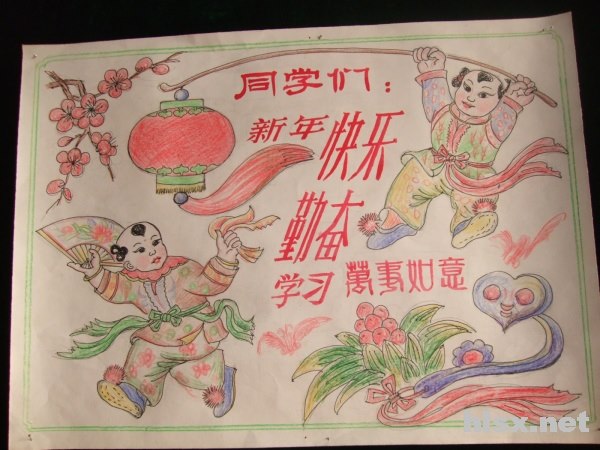 同学们：
新年快乐
勤奋
学习 萬事如意
htxx.net